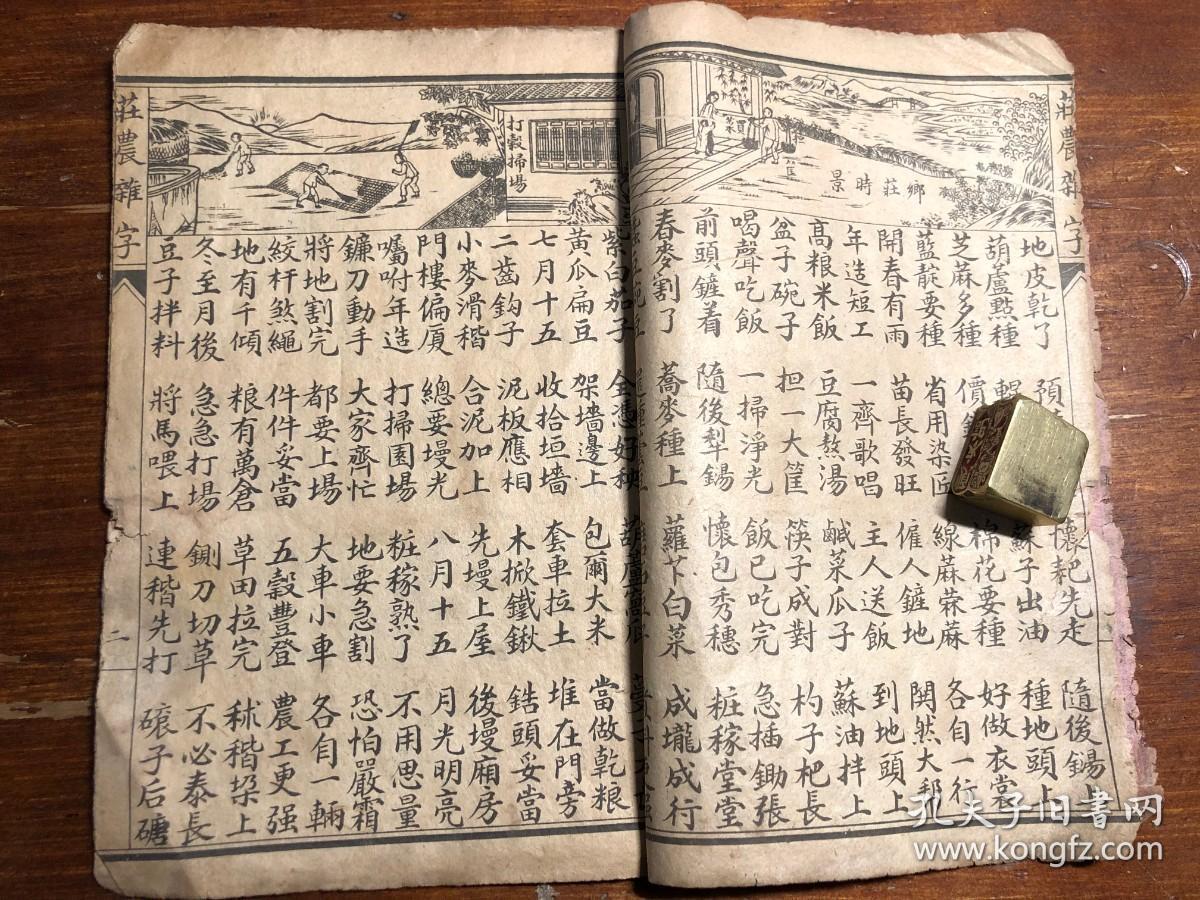 莊農雜字
鄉莊時景
地皮乾了 隨後鐋上
葫蘆點種 蘇子出油 種地頭上
芝麻多種 棉花要種 好做衣裳
藍靛要種 省用染匠 線蔴𦬁蔴 各自一行
開春有雨 苗長發旺 僱人鏟地 鬨然大邦
年造短工 一齊歌唱 主人送飯 到地頭上
高粮米飯 豆腐熬湯 鹹菜瓜子 蘇油拌上
盆子碗子 担一大筐 筷子成對 杓子杷長
喝聲吃飯 一掃淨光 飯已吃完 急插鋤張
前頭鏟着 隨後犁鐋 懷包秀穗 粧稼堂堂
春麥割了 蕎麥種上 蘿卜白菜 成壠成行
打穀掃場
紫白茄子 全憑好秧 包爾大米 當做乾粮
黃瓜扁豆 架墻邊上
七月十五 收拾垣墻 套車拉土 堆在門旁
二齒鈎子 泥板應相 木掀鐵鍬 鋯頭妥當
小麥滑稭 合泥加上 先墁上屋 後墁廂房
門樓偏厦 總要墁光 八月十五 月光明亮
囑咐年造 打掃園場 粧稼熟了 不用思量
鐮刀動手 大家齊忙 地要急割 恐怕嚴霜
將地割完 都要上場 大車小車 各自一輛
絞杆煞繩 件件妥當 五穀豐登 農工更强
地有千傾 粮有萬倉 草田拉完 秫稭垛上
冬至月後 急急打場 鍘刀切草 不必泰長
豆子拌料 將馬喂上 連稭先打 磙子后礳
莊農雜字
二
孔夫子旧書网
www.kongfz.com